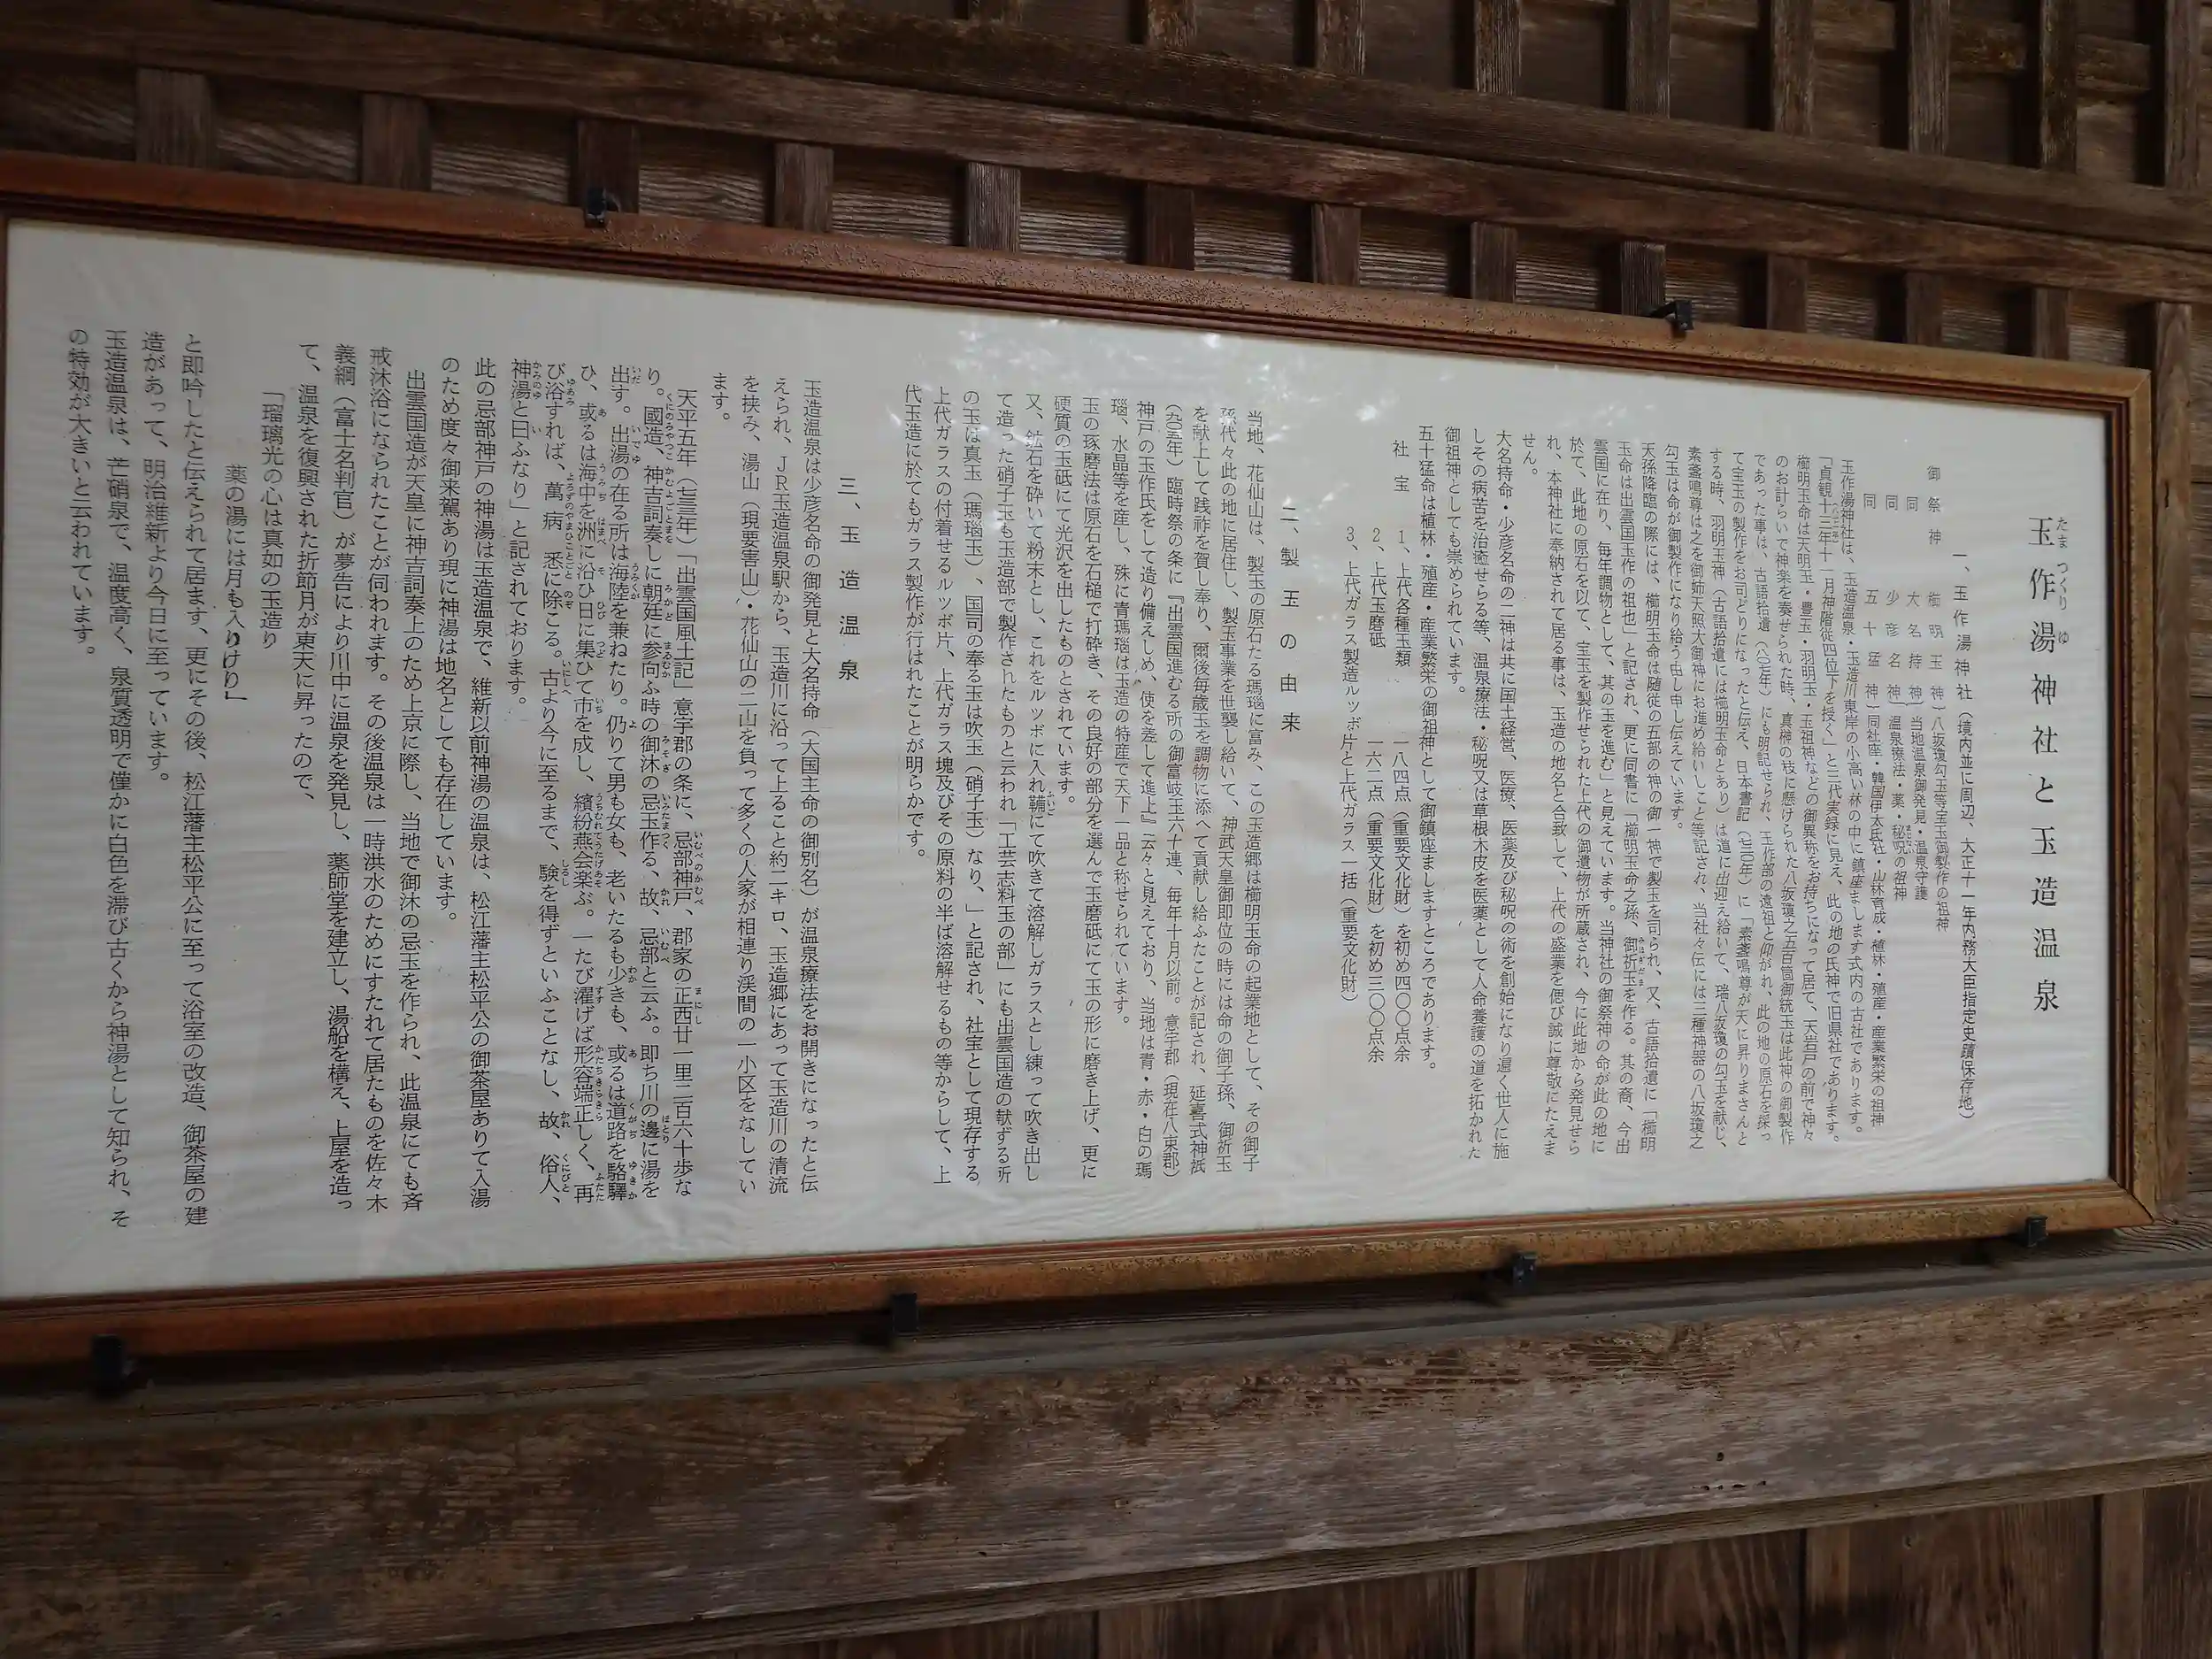 玉作湯神社と玉造温泉
一、玉作湯神社（境内並に周辺、大正十一年内務大臣指定史蹟保存地）
御祭神 櫛明玉神〕八坂瓊勾玉等宝玉御製作の祖神
同 大名持神〕当地温泉御発見・温泉守護
同 少彦名神〕温泉療法・薬・秘呪の祖神
同 五十猛神〕同社座・韓国伊太氐社・山林育成・植林・殖産・産業繁栄の祖神
玉作湯神社は、玉造温泉・玉造川東岸の小高い林の中に鎮座まします式内の古社であります。
「貞観十三年十一月神階従四位下を授く」と三代実録に見え、此の地の氏神で旧県社であります。
櫛明玉命は天明玉・豊玉・羽明玉・玉祖神などの御異称をお持ちになって居て、天岩戸の前で神々
のお計らいで神楽を奏せられた時、真榊の枝に懸けられた八坂瓊之五百箇御統玉は此神の御製作
であった事は、古語拾遺（八〇七年）にも明記せられ、玉作部の遠祖と仰がれ、此の地の原石を採っ
て宝玉の製作をお司どりになったと伝え、日本書記（七二〇年）に「素盞嗚尊が天に昇りまさんと
する時、羽明玉神（古語拾遺には櫛明玉命とあり）は道に出迎え給いて、瑞八坂瓊の勾玉を献じ、
素盞嗚尊は之を御姉天照大御神にお進め給いしこと等記され、当社々伝には三種神器の八坂瓊之
勾玉は命が御製作になり給う由し申し伝えています。
天孫降臨の際には、櫛明玉命は随従の五部の神の御一神で製玉を司られ、又、古語拾遺に「櫛明
玉命は出雲国玉作の祖也」と記され、更に同書に「櫛明玉命之孫、御祈玉を作る。其の裔、今出
雲国に在り、毎年調物として、其の玉を進む」と見えています。当神社の御祭神の命が此の地に
於て、此地の原石を以て、宝玉を製作せられた上代の御遺物が所蔵され、今に此地から発見せら
れ、本神社に奉納されて居る事は、玉造の地名と合致して、上代の盛業を偲び誠に尊敬にたえま
せん。
大名持命・少彦名命の二神は共に国土経営、医療、医薬及び秘呪の術を創始になり遍く世人に施
しその病苦を治癒せらる等、温泉療法・秘呪又は草根木皮を医薬として人命養護の道を拓かれた
御祖神としても崇められています。
五十猛命は植林・殖産・産業繁栄の御祖神として御鎮座ましますところであります。
社宝 1、上代各種玉類 一八四点（重要文化財）を初め四〇〇点余
2、上代玉磨砥 一六二点（重要文化財）を初め三〇〇点余
3、上代ガラス製造ルツボ片と上代ガラス一括（重要文化財）
二、製玉の由来
当地、花仙山は、製玉の原石たる瑪瑙に富み、この玉造郷は櫛明玉命の起業地として、その御子
孫代々此の地に居住し、製玉事業を世襲し給いて、神武天皇御即位の時には命の御子孫、御祈玉
を献上して践祚を賀し奉り、爾後毎歳玉を調物に添へて貢献し給ふたことが記され、延喜式神祇
（九〇五年）臨時祭の条に『出雲国進むる所の御富岐玉六十連、毎年十月以前。意宇郡（現在八束郡）
神戸の玉作氏をして造り備えしめ、使を差して進上』云々と見えており、当地は青・赤・白の瑪
瑙、水晶等を産し、殊に青瑪瑙は玉造の特産で天下一品と称せられています。
玉の琢磨法は原石を石槌で打砕き、その良好の部分を選んで玉磨砥にて玉の形に磨き上げ、更に
硬質の玉砥にて光沢を出したものとされています。
又、鉱石を砕いて粉末とし、これをルツボに入れ鞴にて吹きて溶解しガラスとし練って吹き出し
て造った硝子玉も玉造部で製作されたものと云われ「工芸志料玉の部」にも出雲国造の献ずる所
の玉は真玉（瑪瑙玉）、国司の奉る玉は吹玉（硝子玉）なり、」と記され、社宝として現存する
上代ガラスの付着せるルツボ片、上代ガラス塊及びその原料の半ば溶解せるもの等からして、上
代玉造に於てもガラス製作が行はれたことが明らかです。
三、玉造温泉
玉造温泉は少彦名命の御発見と大名持命（大国主命の御別名）が温泉療法をお開きになったと伝
えられ、ＪＲ玉造温泉駅から、玉造川に沿って上ること約二キロ、玉造郷にあって玉造川の清流
を挟み、湯山（現要害山）・花仙山の二山を負って多くの人家が相連り渓間の一小区をなしてい
ます。
天平五年（七三三年）「出雲国風土記」意宇郡の条に、忌部神戸、郡家の正西廿一里二百六十歩な
り。國造、神吉詞奏しに朝廷に参向ふ時の御沐の忌玉作る、故、忌部と云ふ。即ち川の邊に湯を
出す。出湯の在る所は海陸を兼ねたり。仍りて男も女も、老いたるも少きも、或るは道路を駱驛
ひ、或るは海中を洲に沿ひ日に集ひて市を成し、繽紛燕会楽ぶ。一たび濯げば形容端正しく、再
び浴すれば、萬病悉に除こる。古より今に至るまで、験を得ずといふことなし、故、俗人、
神湯と曰ふなり」と記されております。
此の忌部神戸の神湯は玉造温泉で、維新以前神湯の温泉は、松江藩主松平公の御茶屋ありて入湯
のため度々御来駕あり現に神湯は地名としても存在しています。
出雲国造が天皇に神吉詞奏上のため上京に際し、当地で御沐の忌玉を作られ、此温泉にても斉
戒沐浴になられたことが伺われます。その後温泉は一時洪水のためにすたれて居たものを佐々木
義綱（富士名判官）が夢告により川中に温泉を発見し、薬師堂を建立し、湯船を構え、上屋を造っ
て、温泉を復興された折節月が東天に昇ったので、
「瑠璃光の心は真如の玉造り
薬の湯には月も入りけり」
と即吟したと伝えられて居ます、更にその後、松江藩主松平公に至って浴室の改造、御茶屋の建
造があって、明治維新より今日に至っています。
玉造温泉は、芒硝泉で、温度高く、泉質透明で僅かに白色を滞び古くから神湯として知られ、そ
の特効が大きいと云われています。